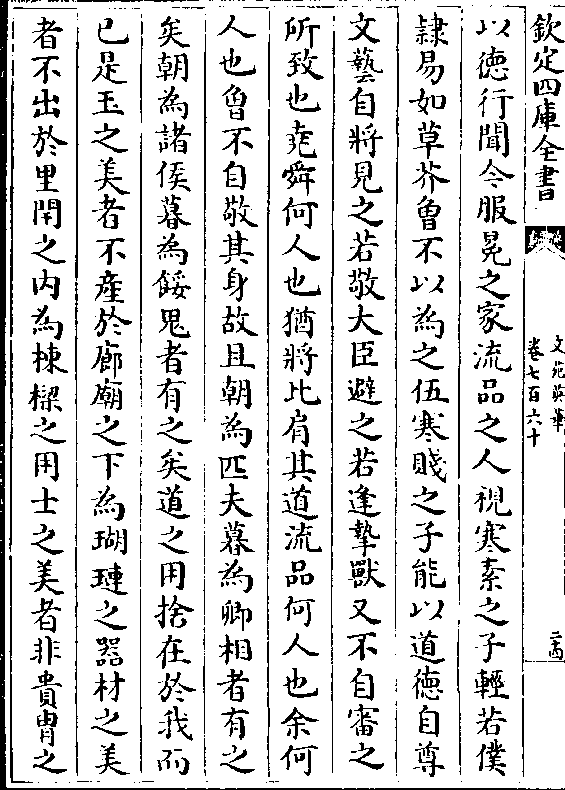 欽定四庫全書
文苑英華
卷七百六十
以徳行聞今服冕之家流品之人視寒素之子輕若僕
隷易如草芥曽不以為之伍寒賤之子能以道徳自尊
文藝自將見之若敬大臣避之若逢摯獸又不自審之
所致也堯舜何人也猶將比肩其道流品何人也余何
人也曽不自敬其身故且朝為匹夫暮為卿相者有之
矣朝為諸侯暮為餒鬼者有之矣道之用捨在於我而
已是玉之美者不產於廊廟之下為瑚璉之器材之美
者不出於里閈之内為棟樑之用士之美者非貴胄之